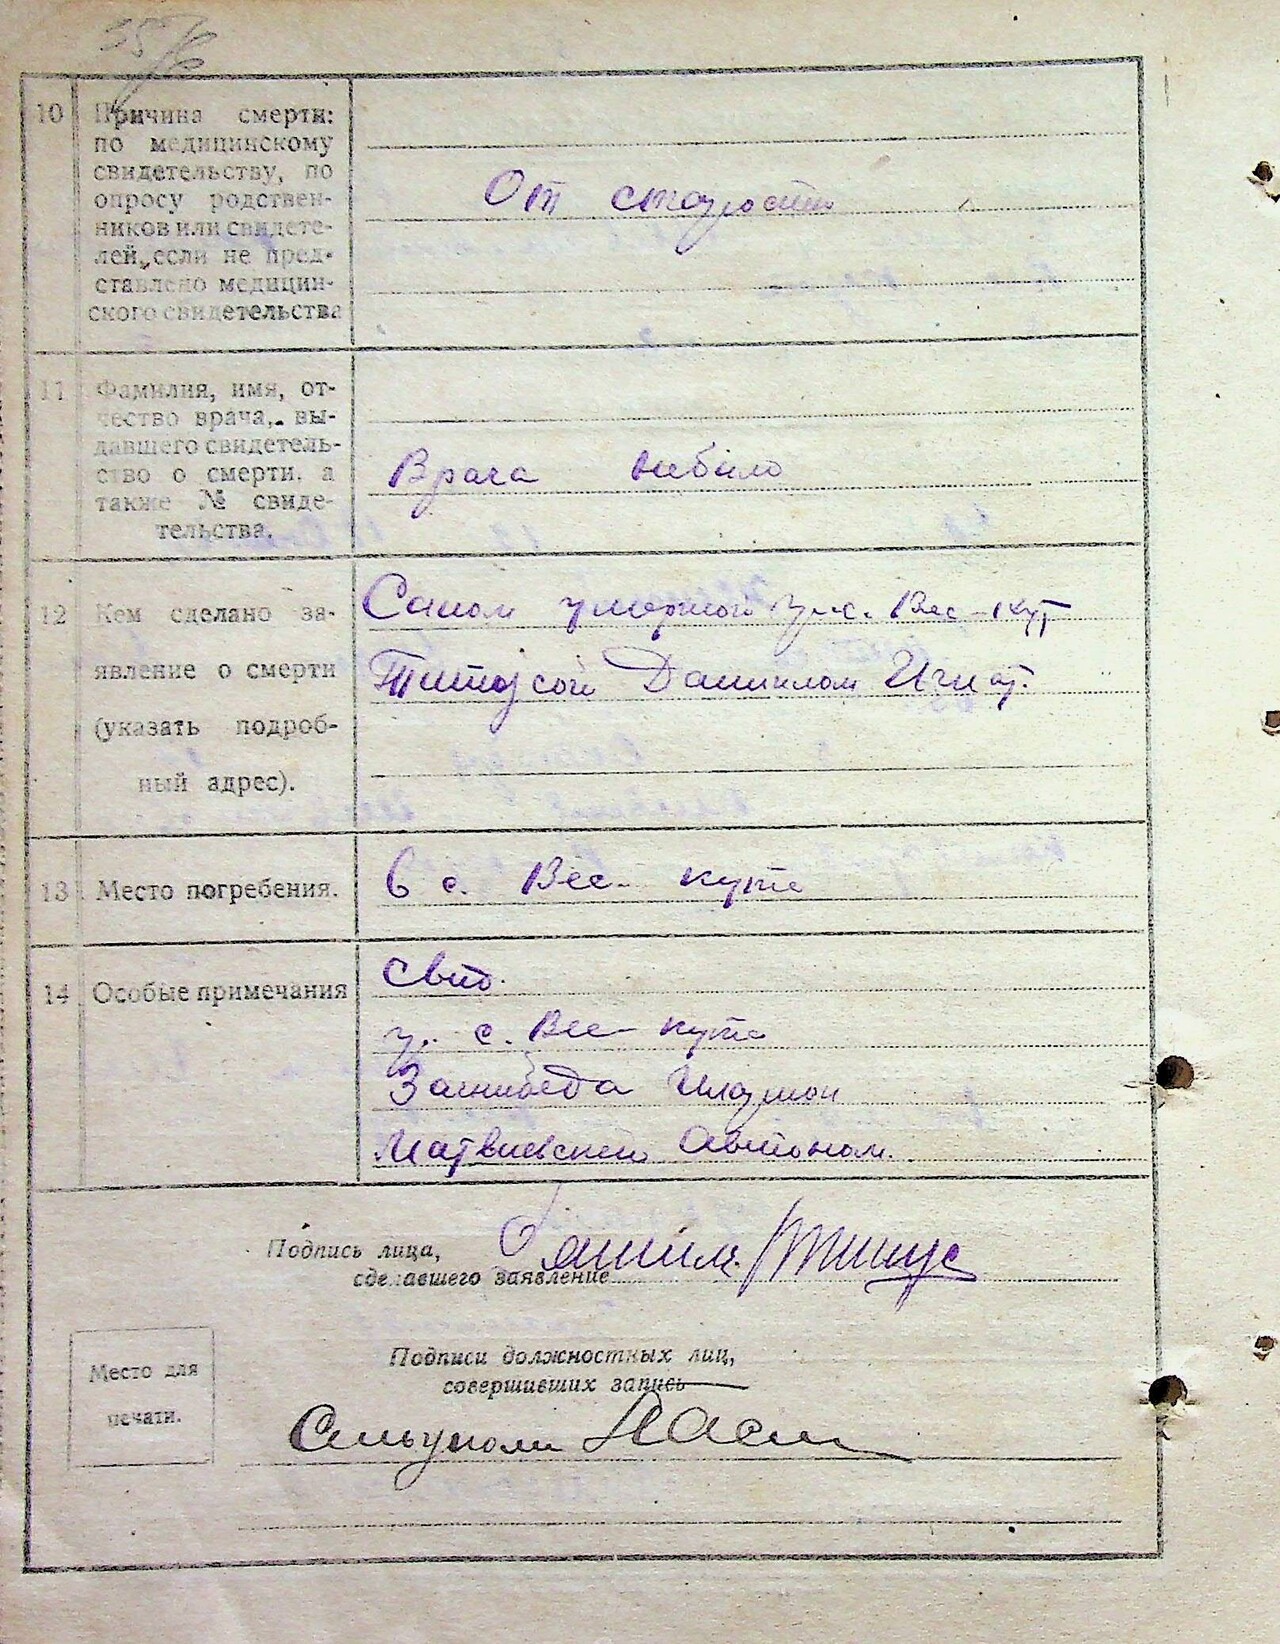 10 Причина смерти:
по медицинскому
свидетельству, по
опросу родствен-
ников или свидете-
лей, если не пред-
ставлено медицин-
ского свидетельства
От старости
11 Фамилия, имя, от-
чество врача, вы-
давшего свидетель-
ство о смерти, а
также № свиде-
тельства.
Врача небыло
12 Кем сделано за-
явление о смерти
(указать подроб-
ный адрес).
Вес-Кут
Даниилом Игнат.
13 Место погребения.
в с. Вес- куте
14 Особые примечания
Свид.
с. Вес- куте
Матвиевский Автоном.
Подпись лица,
сделавшего заявление
Даниил
Место для
печати.
Подписи должностных лиц,
совершивших запись